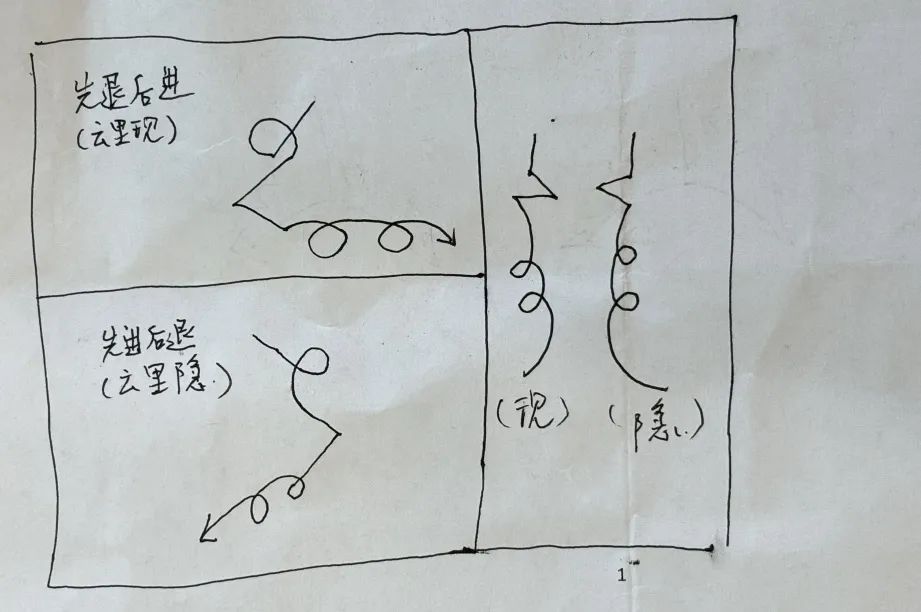 先退后进
(云里现)
先进后退
(云里隐.)
(现)
(隐.)
1